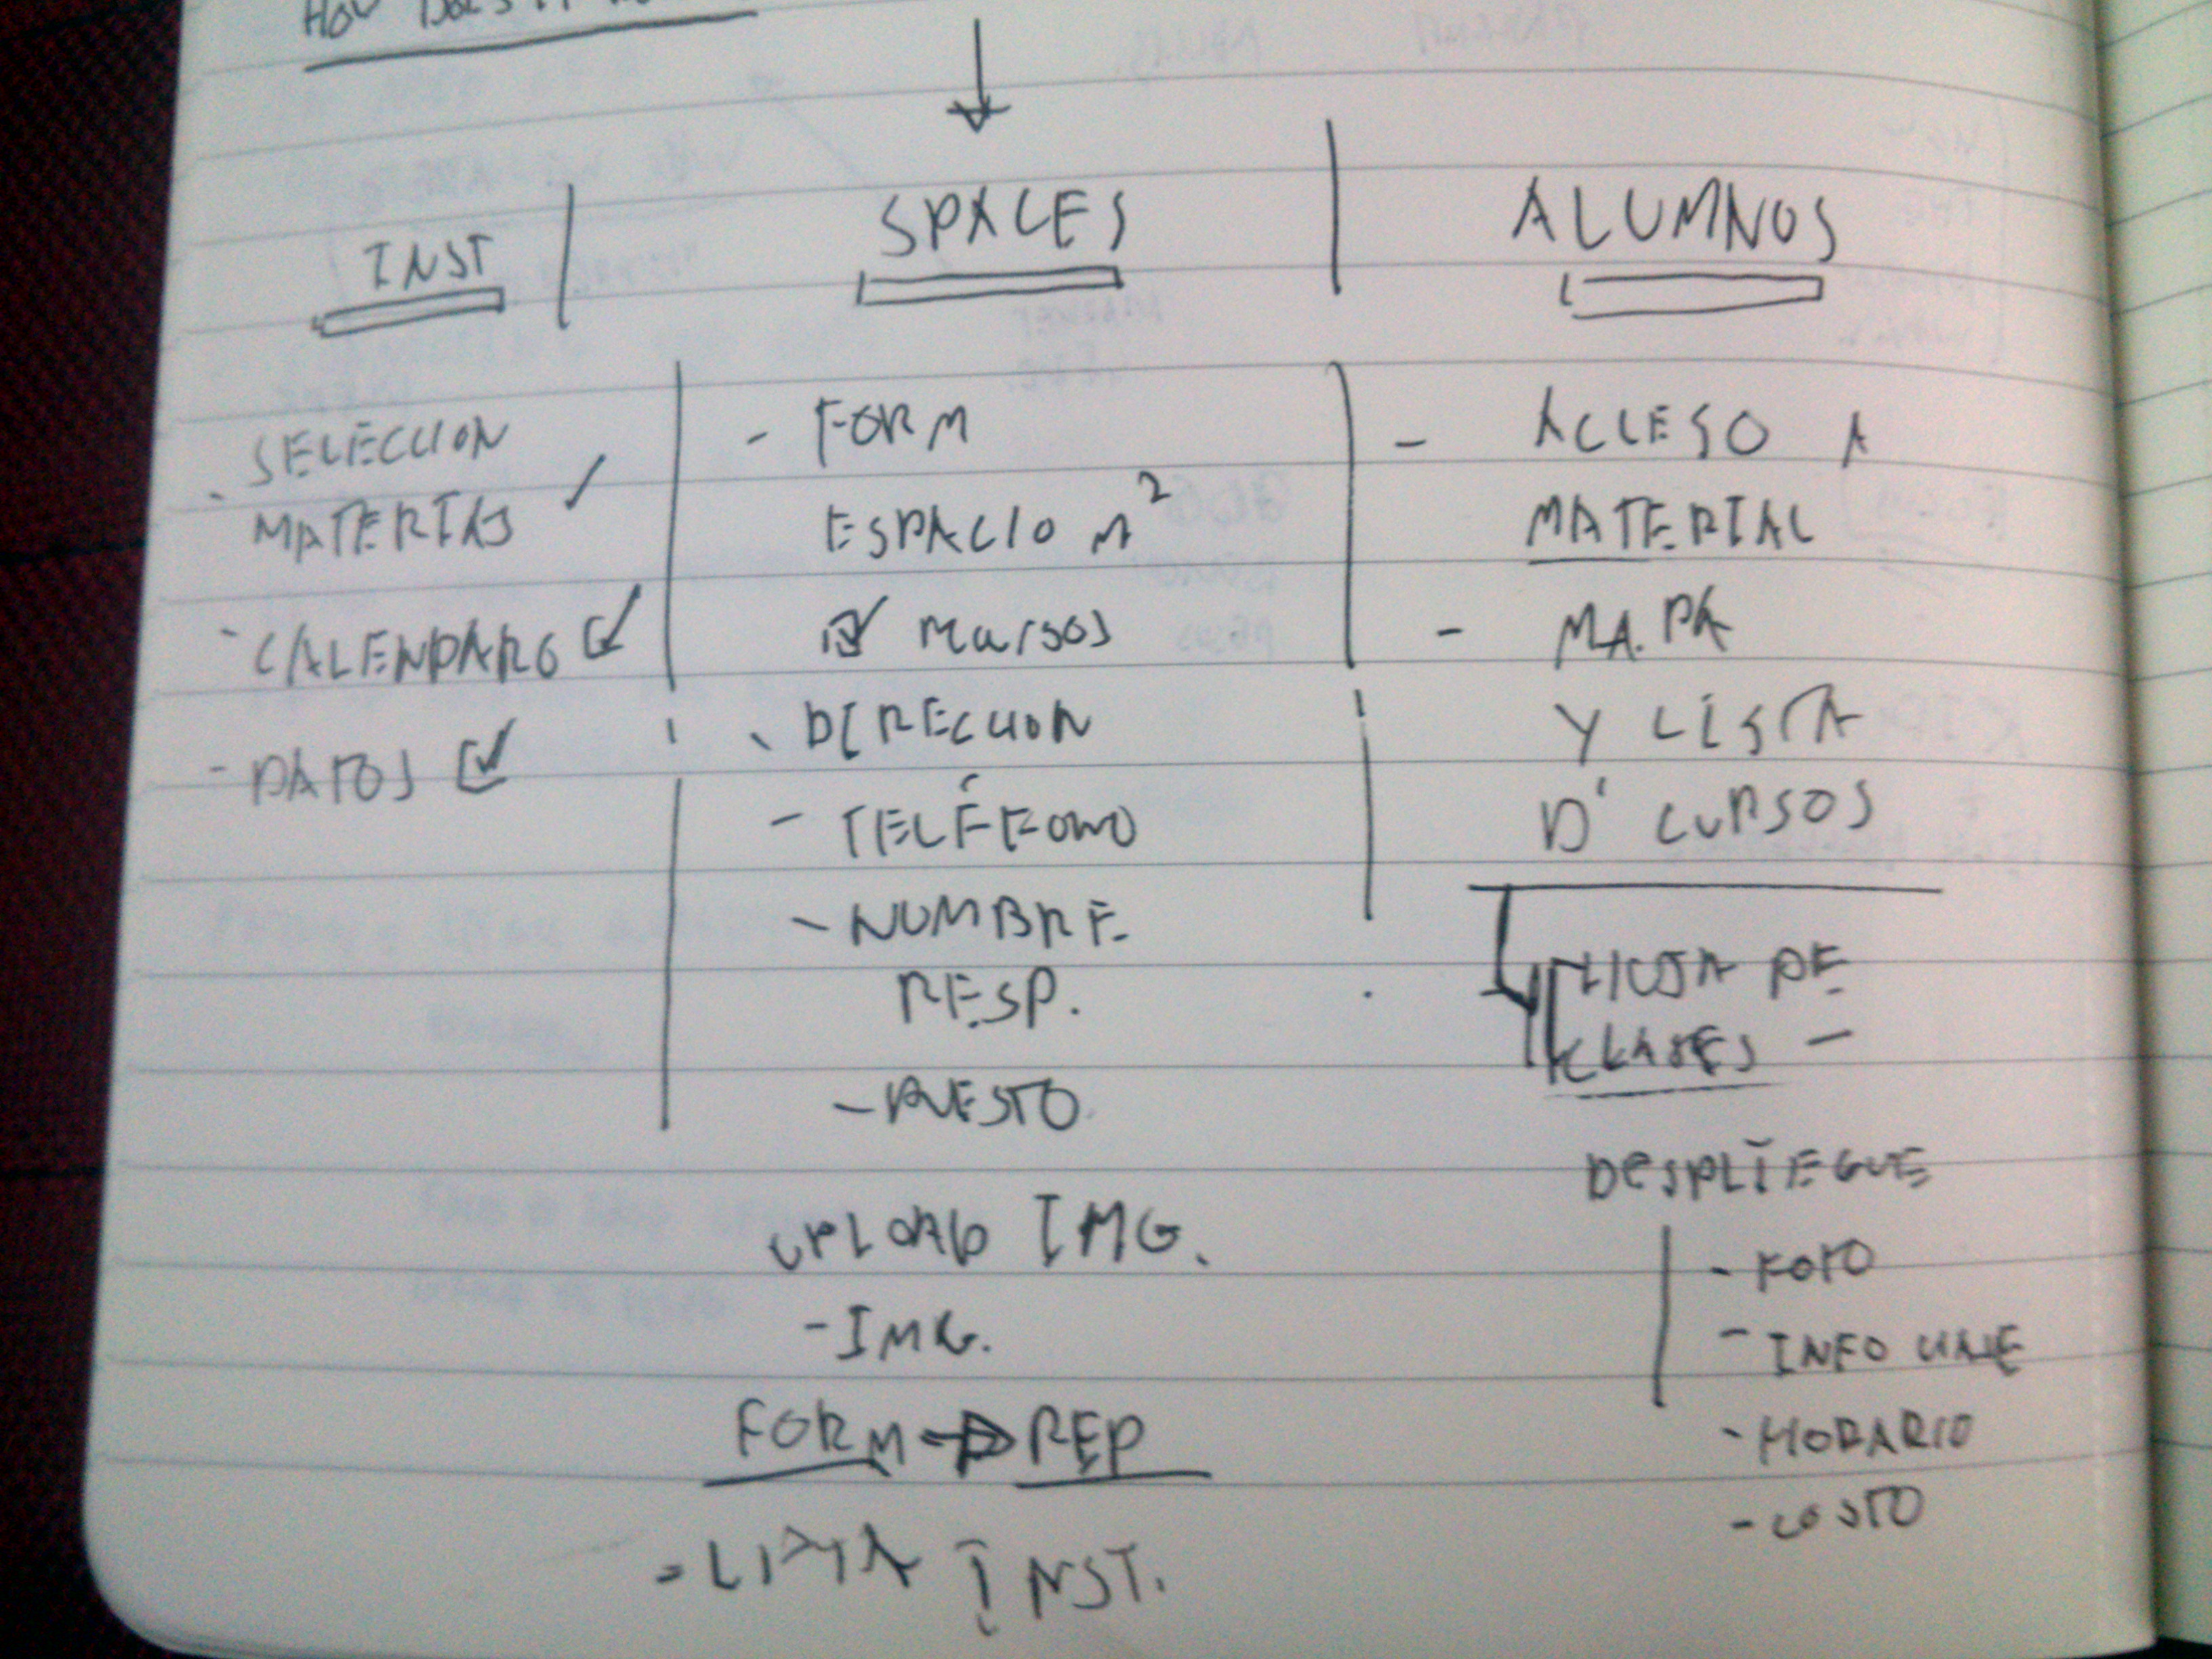 HOW DOES IT
INST
SELECCION
- MATERIAS ✓
- CALENDARO ☑
- DATOS ☑
SPACES
- FORM
ESPACIO M²
☑ recursos
- DIRECCION
- TELÉFONO
- NOMBRE
RESP.
- PUESTO
UPLOAD IMG.
- IMG.
FORM → REP
- LISTA INST.
ALUMNOS
- ACCESO A
MATERIAL
- MAPA
Y LISTA
D' CURSOS
LISTA DE
CLASES -
DESPLIEGUE
- FOTO
- INFO CLASE
- HORARIO
- COSTO